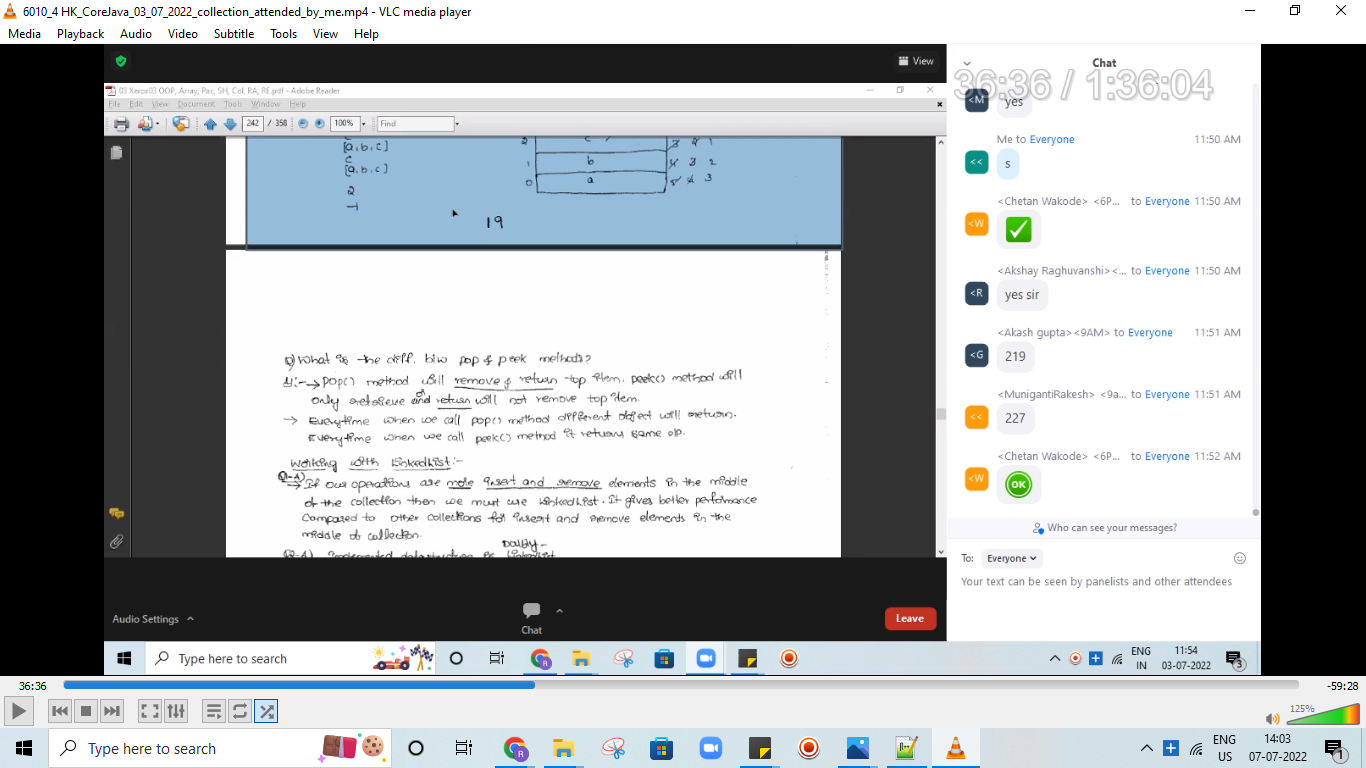 6010_4 HK_CoreJava_03_07_2022_collection_attended_by_me.mp4 - VLC media player
Media Playback Audio Video Subtitle Tools View Help
View
36:36 / 1:36:04
03 Xerox03 OOP, Array, Pac, SH, Col, RA, RE.pdf - Adobe Reader
File Edit View Document Tools Window Help
242 / 358 100% Find
[a,b,c]
c
[a,b,c]
2
-1
2 c 3 4 1
1 b 4 3 2
0 a 5 4 3
19
Q) What is the diff. b/w pop & peek methods?
A:- → pop() method will remove & return top item. peek() method will
only retrieve and return will not remove top item.
→ Everytime when we call pop() method different object will return.
Everytime when we call peek() method it returns same o/p.
Working with LinkedList:-
Q1-A)
→ If our operations are more insert and remove elements in the middle
of the collection then we must use LinkedList. It gives better performance
compared to other collections for insert and remove elements in the
middle of collection.
Doubly-
Chat
<M yes
Me to Everyone 11:50 AM
<< s
<Chetan Wakode> <6P... to Everyone 11:50 AM
<W
<Akshay Raghuvanshi><... to Everyone 11:50 AM
<R yes sir
<Akash gupta><9AM> to Everyone 11:51 AM
<G 219
<MunigantiRakesh> <9a... to Everyone 11:51 AM
<< 227
<Chetan Wakode> <6P... to Everyone 11:52 AM
<W OK
Who can see your messages?
To: Everyone
Your text can be seen by panelists and other attendees
Audio Settings
Chat
Leave
Type here to search
ENG
IN
11:54
03-07-2022
3
36:36
-59:28
125%
Type here to search
ENG
US
14:03
07-07-2022
1